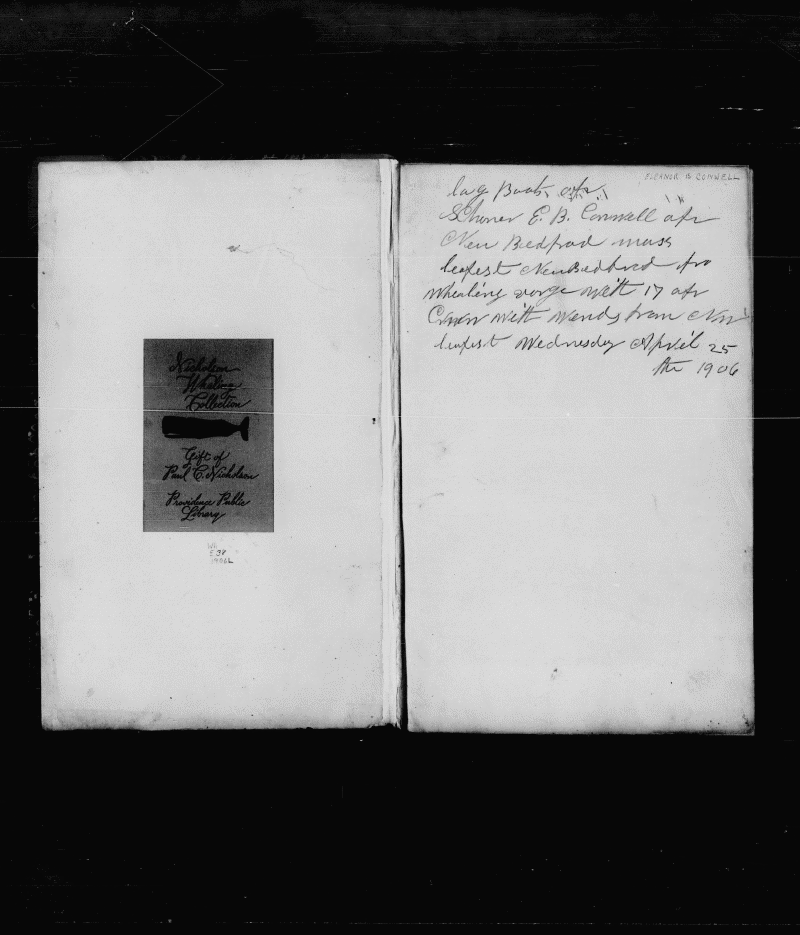 Nicholson
Whaling
Collection
Gift of
Paul C. Nicholson
Providence Public
Library
Wh
E38
1906L
ELEANOR B CONWELL
log Book ofr
Schoner E. B. Conwell ofr
New Bedford mass
leafest New Bedford for
Whealing vorge with 17 ofr
Crewr with Wends from
leafest Wednesday April 25
the 1906